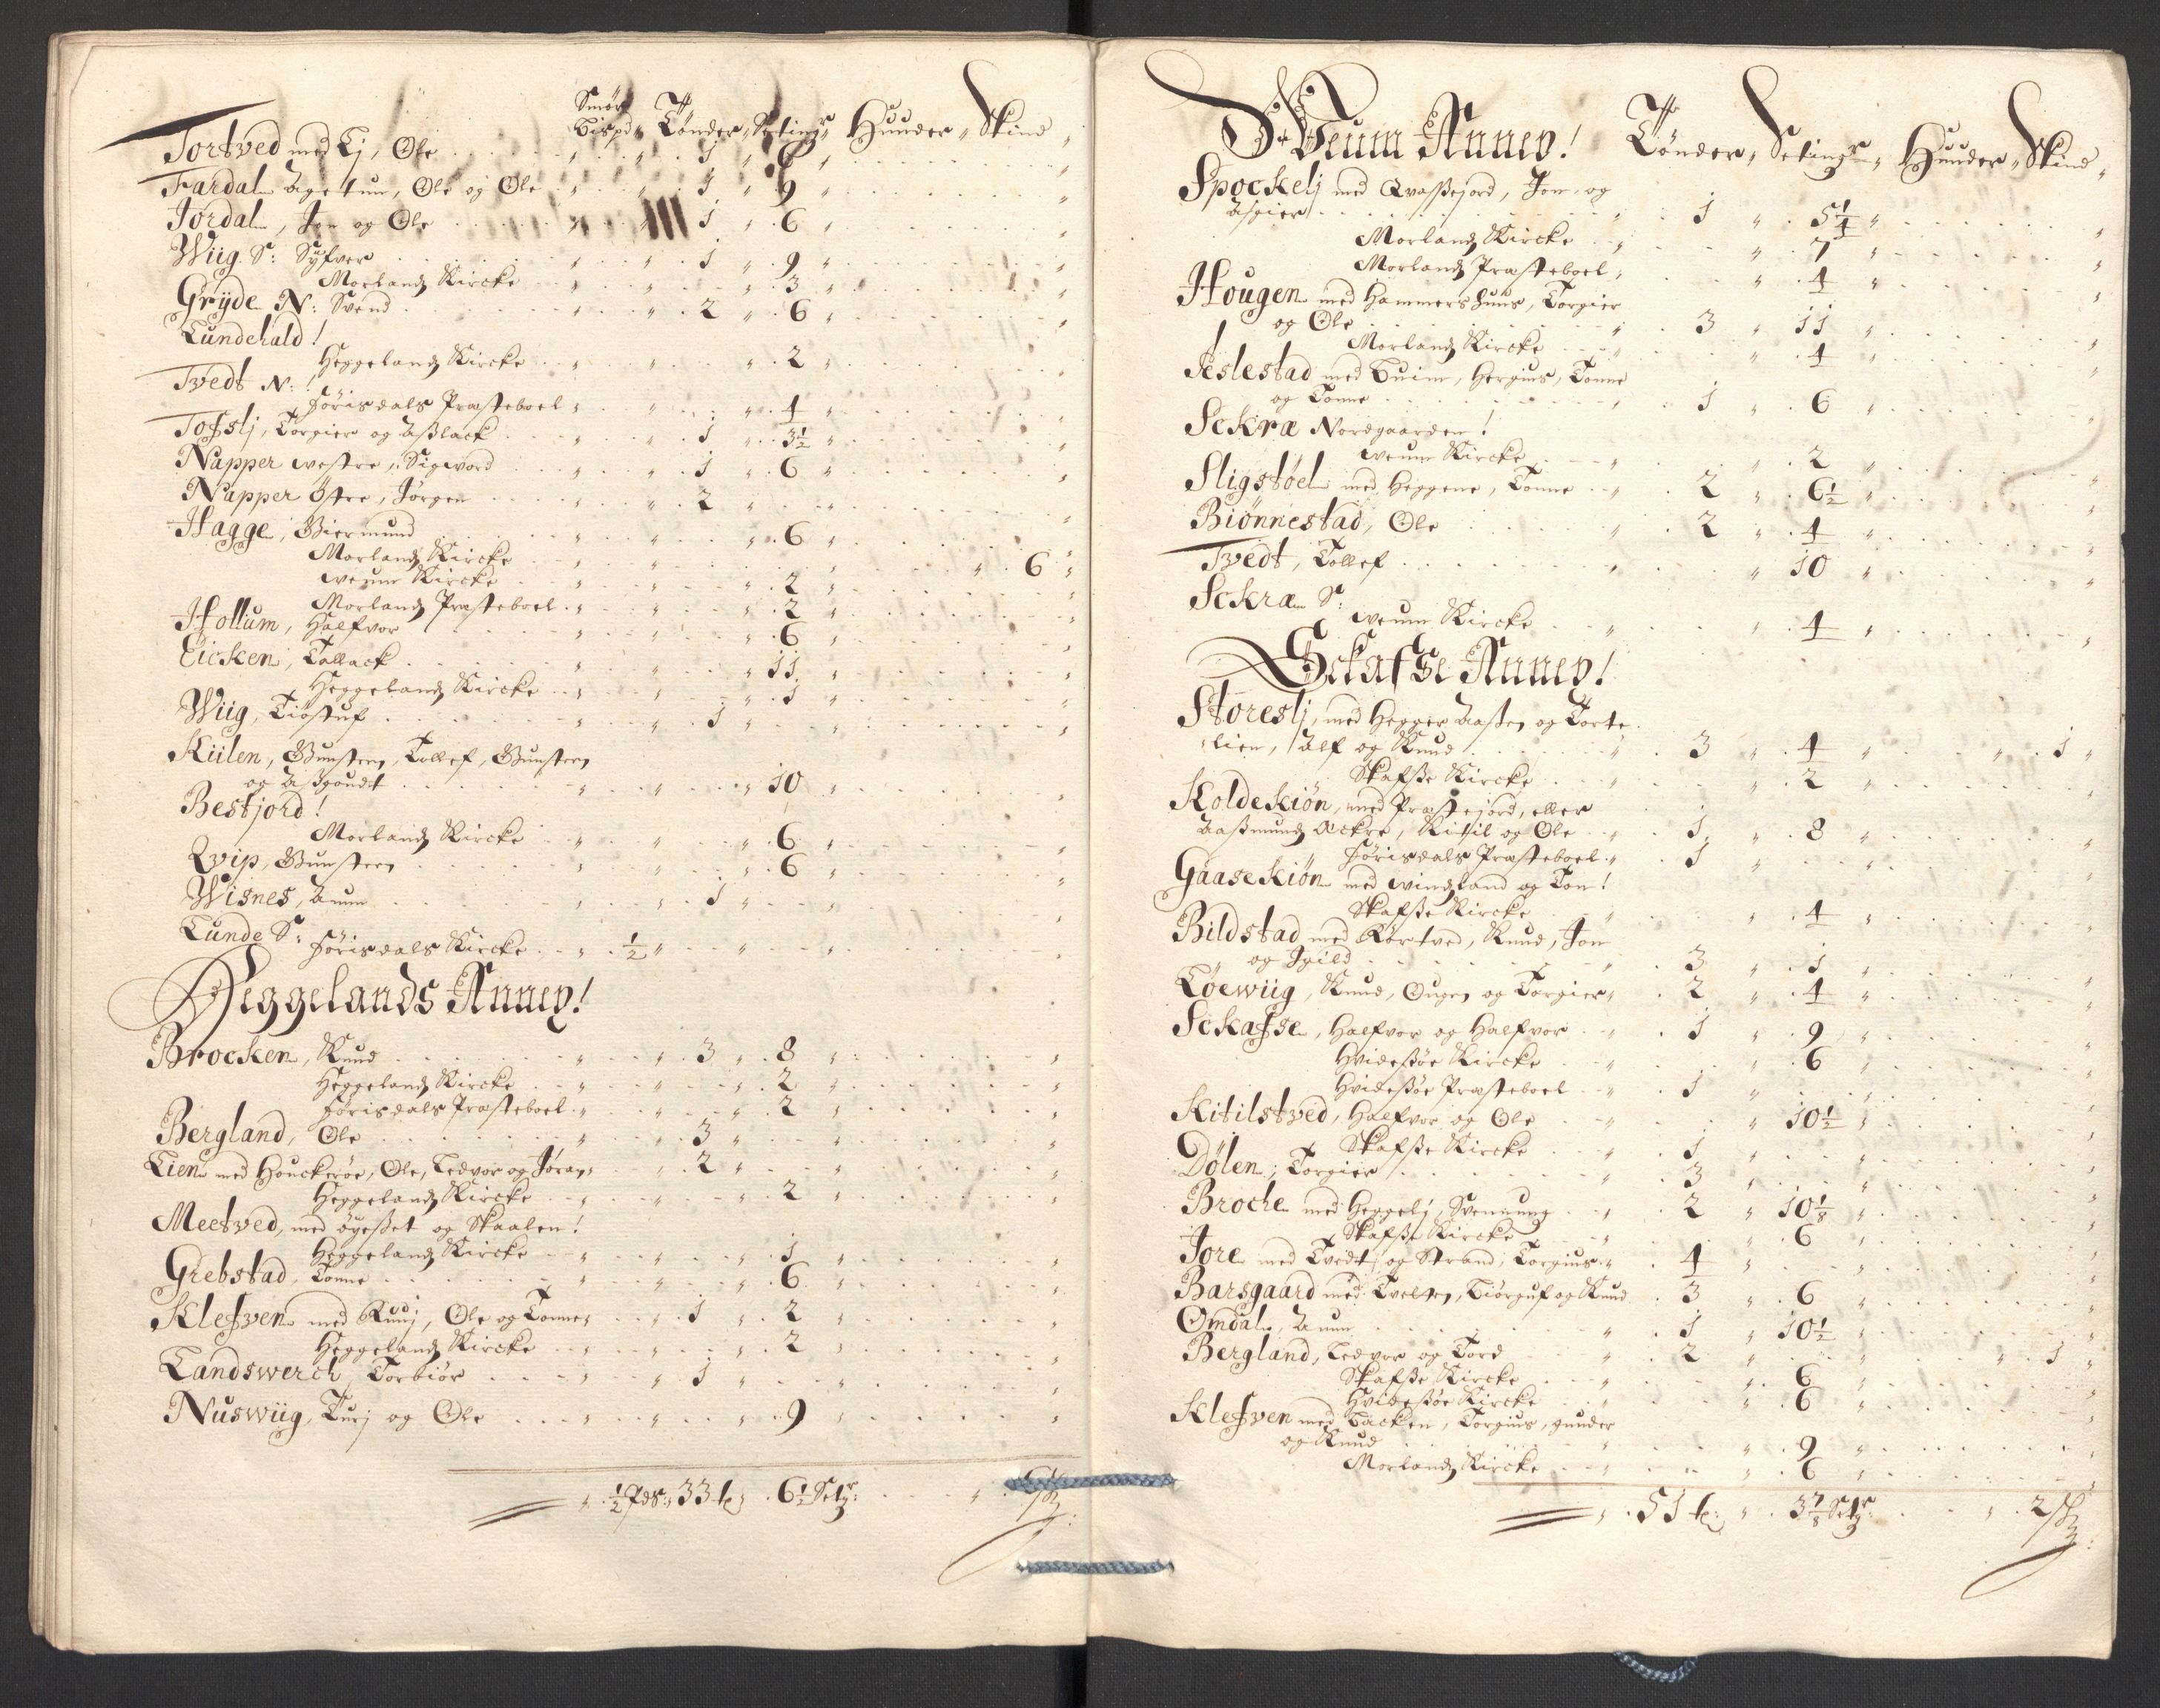 Smør
Bispd „ Tønder „ Setingr „ Huuder „ Skind „
Tortved med Lj, Ole . . . „ „ 1 „ 6 „ „
Fardal Agetun, Ole og Ole „ „ 1 „ 9 „ „
Jordal, Jon og Ole . . . „ „ 1 „ 6 „ „
Wiig S: Syfver . . . „ „ 1 „ 9 „ „
Morlands Kircke . . „ „ „ 3 „ „
Grÿde N: Svend . . . „ „ 2 „ 6 „ „
Lundehald!
Heggelands Kircke . . „ „ „ 2 „ „
Tvedt N:!
Førisdals Præsteboel „ „ „ 4 „ „
Tofslj, Torgier og Aßlack . . „ „ 1 „ 3½ „ „
Napper westre, Sigvord . . „ „ 1 „ 6 „ „
Napper Østre, Jørgen . . . „ „ 2 „ „ „
Hagge, Giermund . . . „ „ „ 6 „ „
Morlands Kircke . . „ „ „ „ 6 „
weum Kircke . . „ „ „ 2 „ „
Morlands Præsteboel „ „ „ 2 „ „
Hollum, Halfvor . . . „ „ „ 6 „ „
Eicken, Tallack . . . „ „ „ 11 „ „
Heggelands Kircke . . „ „ „ 1 „ „
Wiig, Tiøstuf . . . „ „ 1 „ „ „
Kiilen, Gunsten, Tollef, Gunsten
og Aßgoudt . . . „ „ „ 10 „ „
Bestjord!
Morlands Kircke . . „ „ „ 6 „ „
Qvip, Gunsten . . . „ „ „ 6 „ „
Wisnes, Aum . . . „ „ 1 „ „ „
Lunde S:
Førisdals Kircke . . „ ½ „ „ „ „
Heggelands Anney!
Brocken, Knud . . . „ „ 3 „ 8 „ „
Heggelands Kircke . . „ „ „ 2 „ „
Førisdals Præsteboel „ „ „ 2 „ „
Bergland, Ole . . . „ „ 3 „ „ „
Lien med Houckerøe, Ole, Ledvor og Jøran „ „ 2 „ „ „
Heggelands Kircke . . „ „ „ 2 „ „
Meetved, med øyeßet og Skaalen!
Heggelands Kircke . . „ „ „ 1 „ „
Grebstad, Tonne . . . „ „ „ 6 „ „
Klefven med Ruuj, Ole og Tonne „ „ 1 „ 2 „ „
Heggelands Kircke . . „ „ „ 2 „ „
Landswerch, Torbiør . . . „ „ 1 „ „ „
Nuswiig, Turj og Ole . . . „ „ „ 9 „ „
„ ½ Pds: 33 t: 6½ Setr: „ 6 sk:
Weum Anney! Tønder „ Setingr „ Huuder „ Skind „
Spockelj med Qvaßejord, Jon og
Asgier . . . „ 1 „ 5¼ „ „
Morlands Kircke . . „ „ 7 „ „
Morlands Præsteboel „ „ 4 „ „
Hougen med Hammershuus, Torgier
og Ole . . . „ 3 „ 11 „ „
Morlands Kircke . . „ „ 4 „ „
Feslestad med Buim, Hergius, Tonne
og Tonne . . . „ 1 „ 6 „ „
Sckræ Nordgaarden!
weum Kircke . . „ „ 2 „ „
Sligstøel med Heggene, Tonne . . „ 2 „ 6½ „ „
Biønnestad, Ole . . . „ 2 „ 4 „ „
Tvedt, Tollef . . . „ „ 10 „ „
Sckræ S:
weum Kircke . . „ „ 4 „ „
Sckafse Anney!
Storeslj, med Hegger Aaßen og Torte
lien, Alf og Knud . . . „ 3 „ 4 „ „ 1 „
Skafße Kircke . . „ „ 2 „ „
Koldekiøn, med Præstejord, eller
Aaßmunds Ackre, Kitil og Ole „ 1 „ 8 „ „
Førisdals Præsteboel „ 1 „ „ „
Gaasekiøn med windsland og Ton!
Skafße Kircke . . „ „ 4 „ „
Bildstad med Rørtved, Knud, Jon
og Igild . . . „ 3 „ 1 „ „
Løewiig, Knud, Ougen og Torgier „ 2 „ 4 „ „
Sckafse, Halfvor og Halfvor . . „ 1 „ 9 „ „
Hvideßøe Kircke . . „ „ 6 „ „
Hvideßøe Præsteboel . „ 1 „ „ „
Kitilstved, Halfvor og Ole . . „ „ 10½ „ „
Skafße Kircke . . „ 1 „ „ „
Dølen, Torgier . . . „ 3 „ „ „
Broche med Heggelj, Svennung . . „ 2 „ 10⅛ „ „
Skafße Kircke . . „ „ 6 „ „
Jore med Tvedt og Strand, Torgius „ 4 „ „ „
Barsgaard med Tvelten, Tiørguf og Knud . 3 „ 6 „ „
Omdal, Aum . . . „ 1 „ 10½ „ „
Bergland, Ledvor og Tord . . „ 2 „ „ „ 1 „
Skafße Kircke . . „ „ 6 „ „
Hvideßøe Kircke . . „ „ 6 „ „
Klefven med Backen, Torgius, gunder
og Knud . . . „ „ 9 „ „
Morlands Kircke . . „ „ 6 „ „
„ 51 t: „ 3⅞ Setr: „ 2 sk: